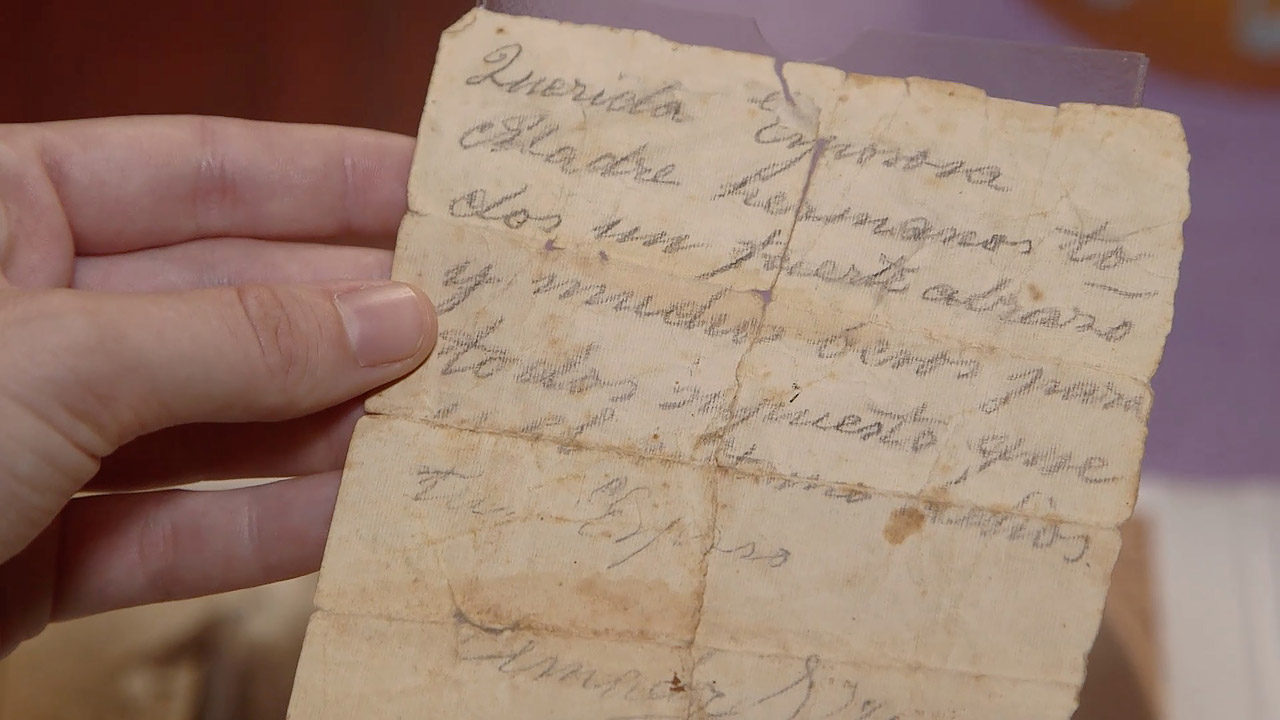 Querida Esposa
Madre hermanos to
dos un fuerte abrazo
y muchos besos para
todos supuesto que
Tu Esposo